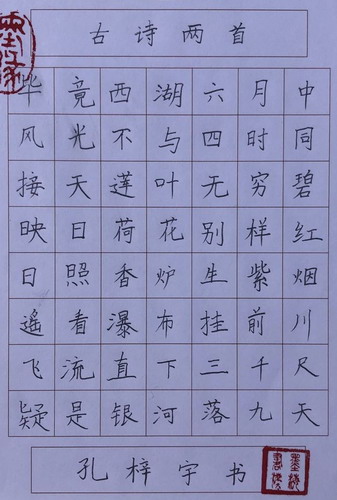 古诗两首
毕竟西湖六月中
风光不与四时同
接天莲叶无穷碧
映日荷花别样红
日照香炉生紫烟
遥看瀑布挂前川
飞流直下三千尺
疑是银河落九天
孔梓宇书